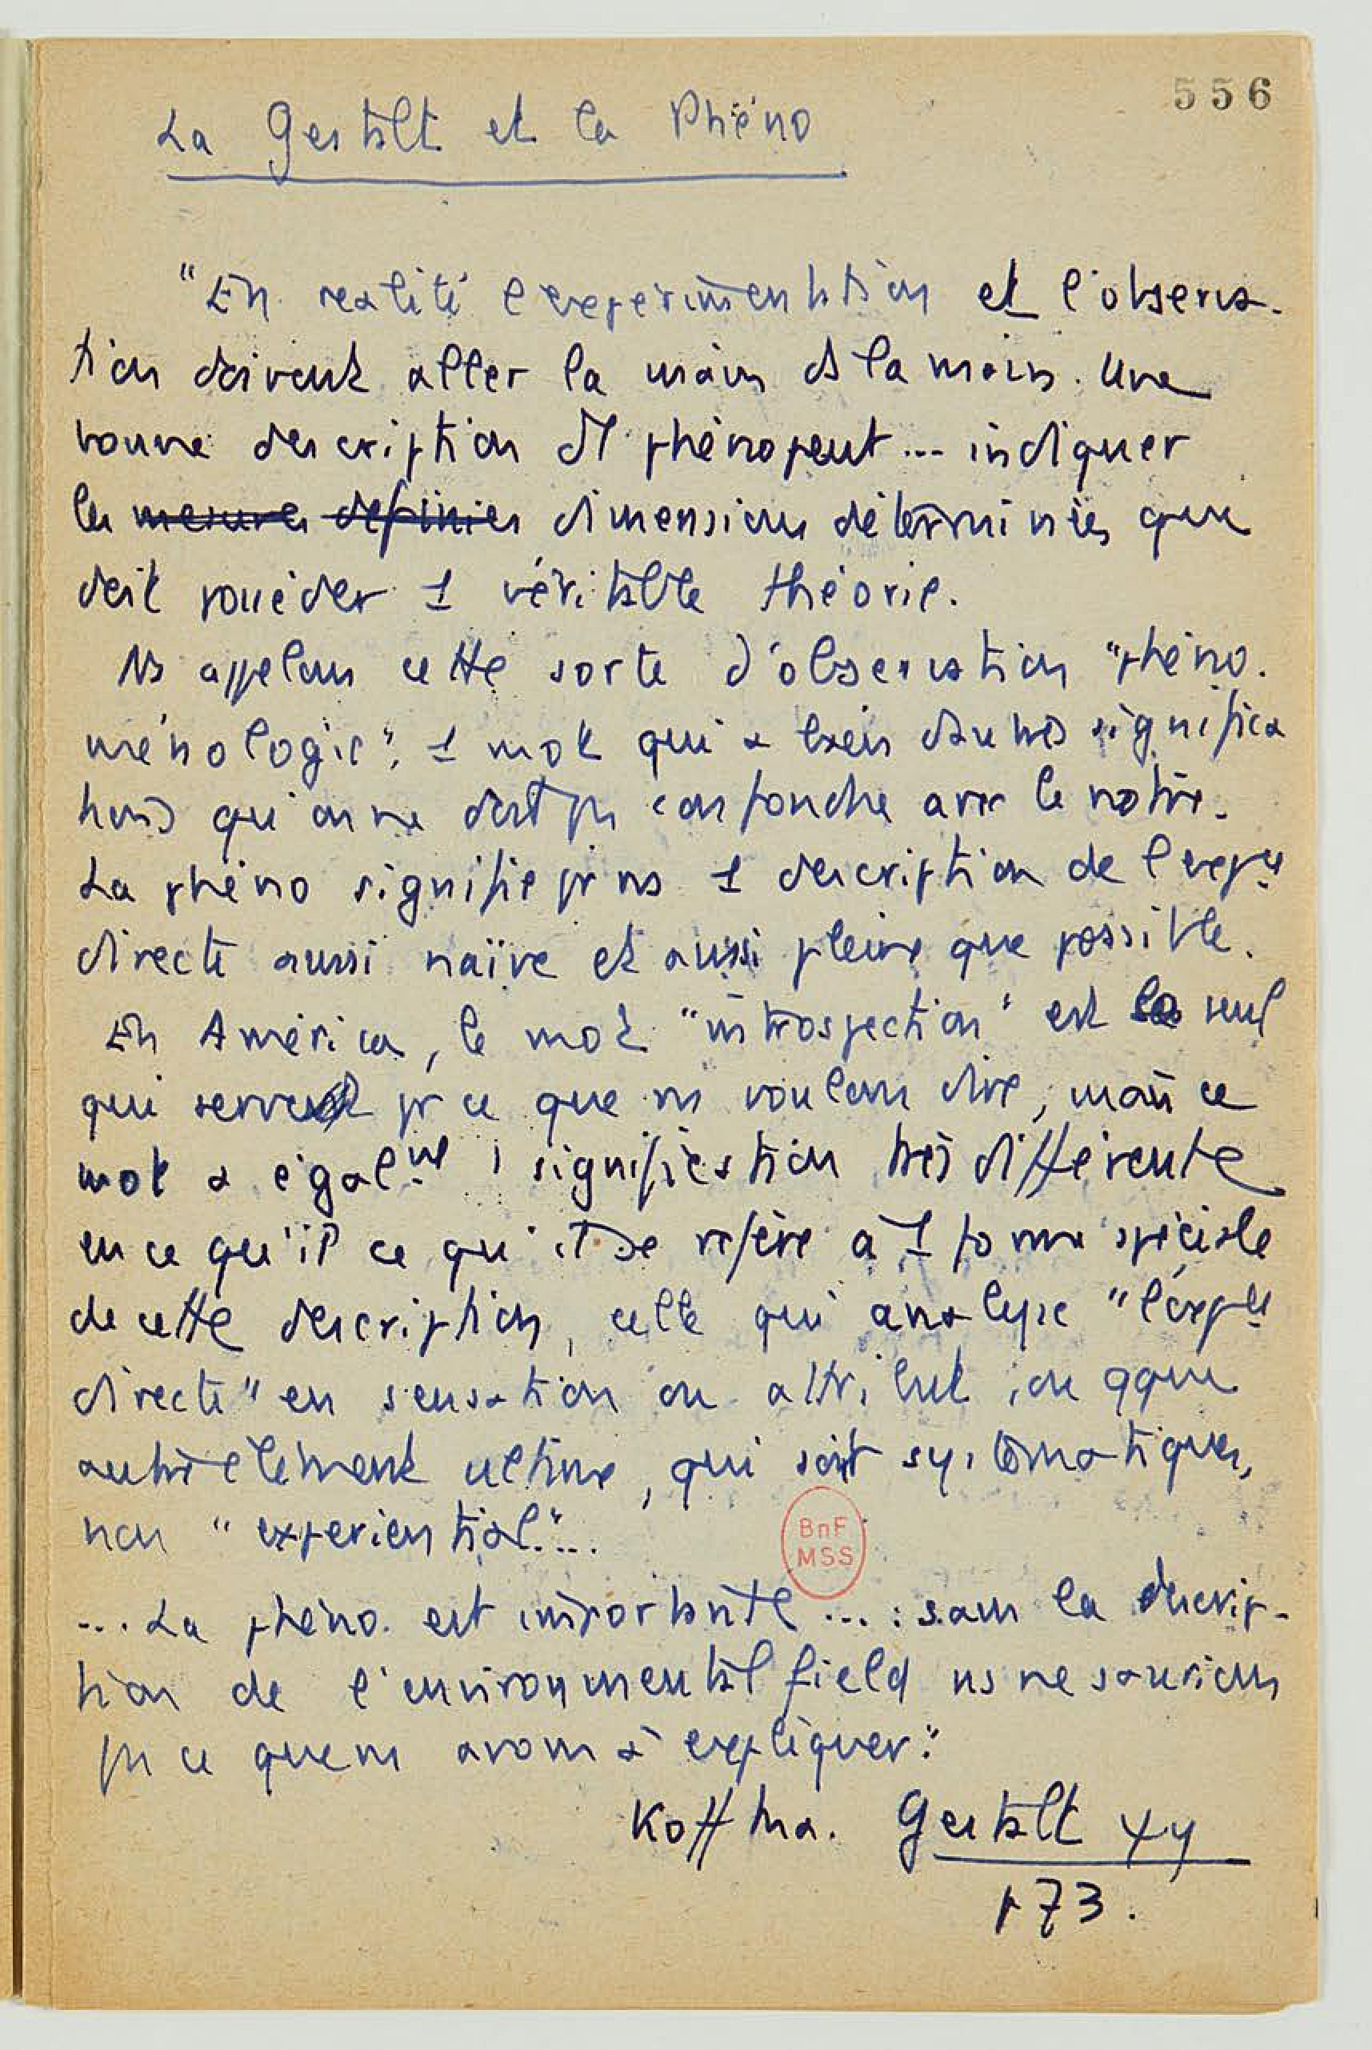 556
La Gestalt et la Phéno
"En realité l'experimentation et l'observa-
tion doivent aller la main ds la main. Une
bonne description d1 phéno peut ... indiquer
les mesures definies dimensions déterminées que
doit posséder 1 véritable théorie.
Ns appelons cette sorte d'observation "phéno-
ménologie", 1 mot qui a bien d'autres significa
tions qu'on ne doit ps confondre avec le notre.
La phéno signifie pr ns 1 description de l'expce
directe aussi naïve et aussi pleine que possible.
En América, le mot "introspection" est le seul
qui serve pr ce que ns voulons dire, mais ce
mot a égalmt 1 signification très différente
en ce qu'il ce qu'il se refère à 1 forme spéciale
de cette description, celle qui analyse "l'expce
directe" en sensation ou attribut, ou qque
autre élément ultime, qui soit systématiques,
non "experiential"...
BnF
MSS
... La phéno. est importante ... : sans la descrip-
tion de l'environmental field ns ne saurions
ps ce que ns avons à expliquer."
Koffka. Gestalt ψy
p 73.